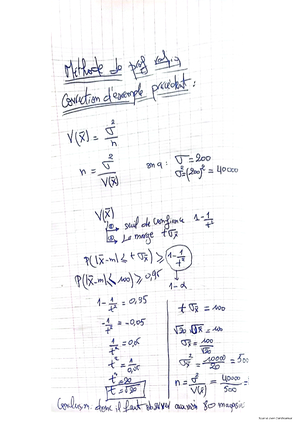 Méthode de prof
Correction d'exemple précédent :
V(x̄) = σ²/n
n = σ²/V(x̄)
on a : σ = 200
σ² = (200)² = 40000
V(x̄)
① seuil de confiance 1 - 1/t²
② La marge t σx̄
P(|x̄-m| ≤ t σx̄) ≥ 1 - 1/t²
P(|x̄-m| ≤ 100) ≥ 0,95
1-α
1 - 1/t² = 0,95
- 1/t² = -0,05
1/t² = 0,05
t² = 1/0,05
t² = 20
t = √20
t σx̄ = 100
√20 σx̄ = 100
σx̄ = 100/√20
σx̄² = 10000/20 = 500
n = σ²/V(x̄) = 40000/500 =
Conclusion : donc il faut observer 80